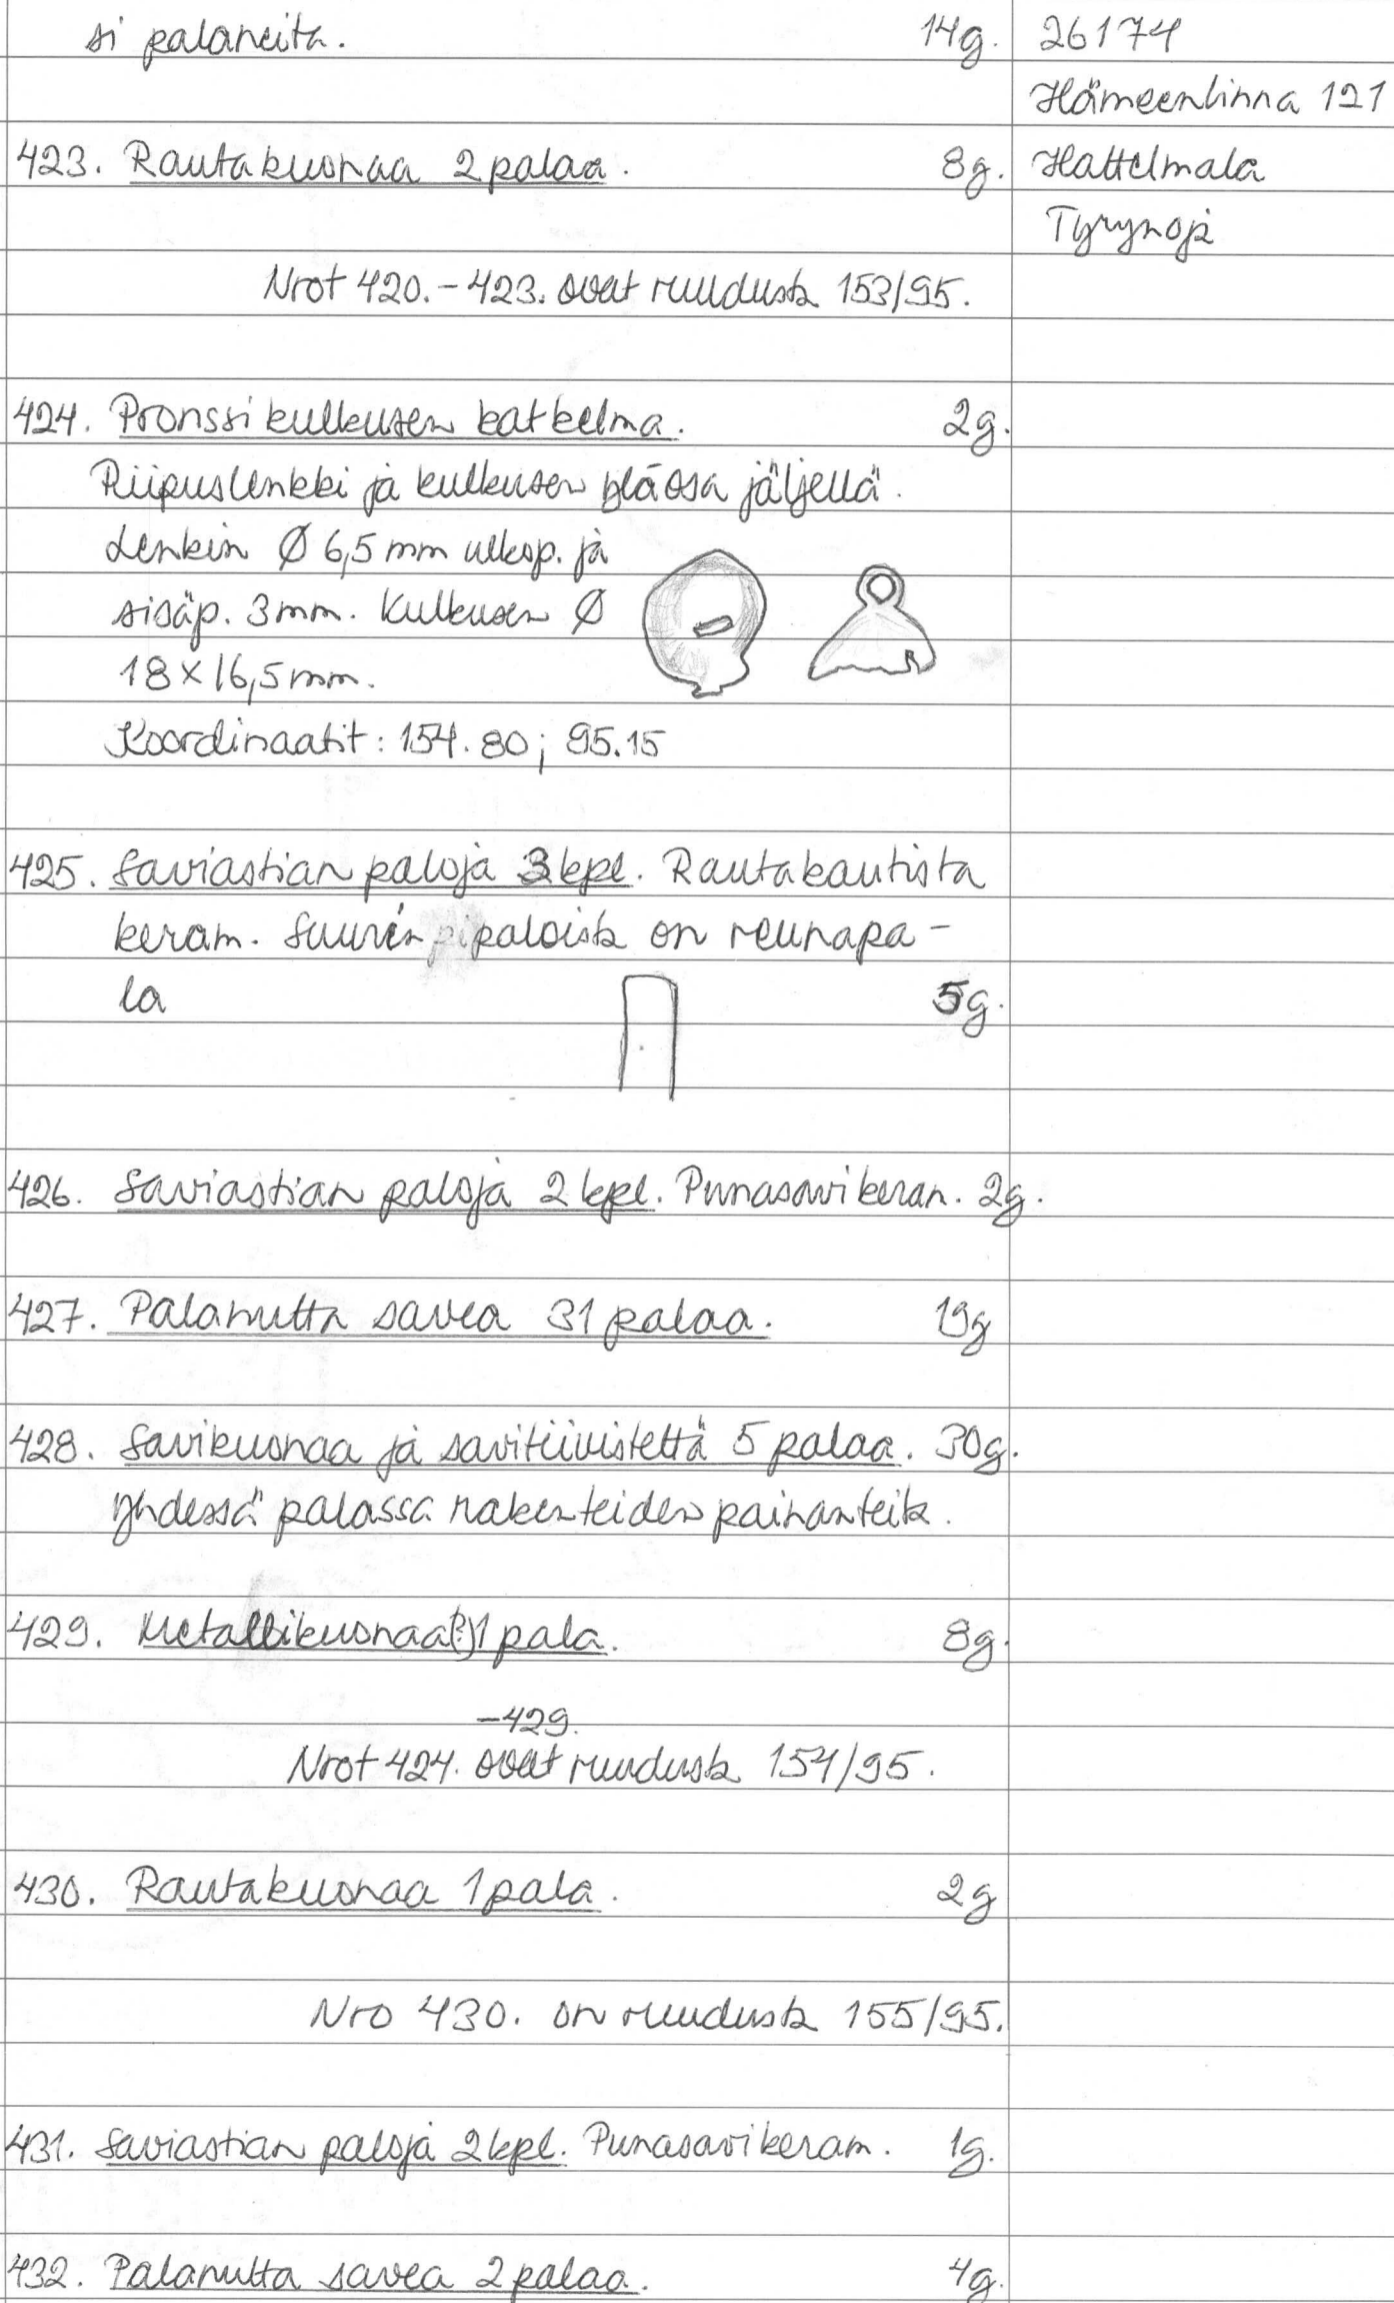 si palaneita. 14g.
26174
Hämeenlinna 121
423. Rautakuonaa 2 palaa. 8g.
Hattelmala
Tyrynoja
Nrot 420.-423. ovat ruudusta 153/95.
424. Pronssikulkusen katkelma. 2g.
Riipuslenkki ja kulkusen yläosa jäljellä.
Lenkin Ø 6,5 mm ulkop. ja
sisäp. 3mm. Kulkusen Ø
18×16,5mm.
Koordinaatit: 154.80; 95.15
425. Saviastian paloja 3 kpl. Rautakautista
keram. Suurin paloista on reunapa-
la 5g.
426. Saviastian paloja 2 kpl. Punasavikeram. 2g.
427. Palanutta savea 31 palaa. 19g
428. Savikuonaa ja savitiivistettä 5 palaa. 30g.
Yhdessä palassa rakenteiden painanteita.
429. Metallikuonaa(?) 1 pala. 8g.
-429.
Nrot 424. ovat ruudusta 154/95.
430. Rautakuonaa 1 pala. 2g
Nro 430. on ruudusta 155/95.
431. Saviastian paloja 2 kpl. Punasavikeram. 1g.
432. Palanutta savea 2 palaa. 4g.